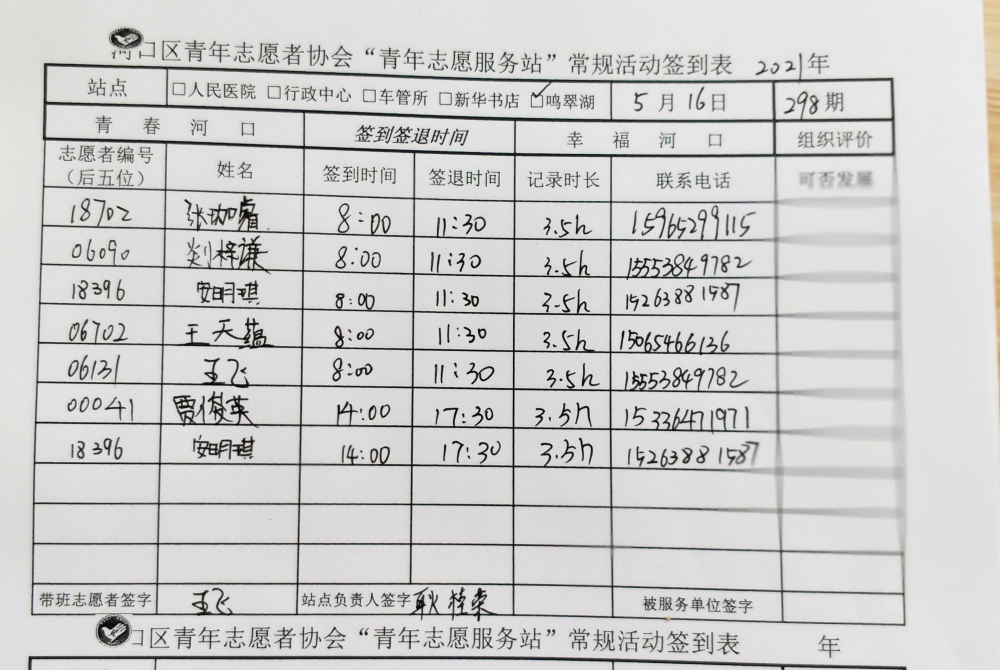 河口区青年志愿者协会“青年志愿服务站”常规活动签到表 2021年
站点 □人民医院 □行政中心 □车管所 □新华书店 ☑鸣翠湖 5月16日 298期
青春河口 签到签退时间 幸福河口 组织评价
志愿者编号（后五位） 姓名 签到时间 签退时间 记录时长 联系电话 可否发展
18702 张珈睿 8:00 11:30 3.5h 15965299115
06090 梓谦 8:00 11:30 3.5h 15553849782
18396 安明琪 8:00 11:30 3.5h 15263881587
06702 王天蕴 8:00 11:30 3.5h 15065466136
06131 王飞 8:00 11:30 3.5h 15553849782
00041 贾俊英 14:00 17:30 3.5h 15336471971
18396 安明琪 14:00 17:30 3.5h 15263881587
带班志愿者签字 王飞 站点负责人签字 耿桂荣 被服务单位签字
口区青年志愿者协会“青年志愿服务站”常规活动签到表 年